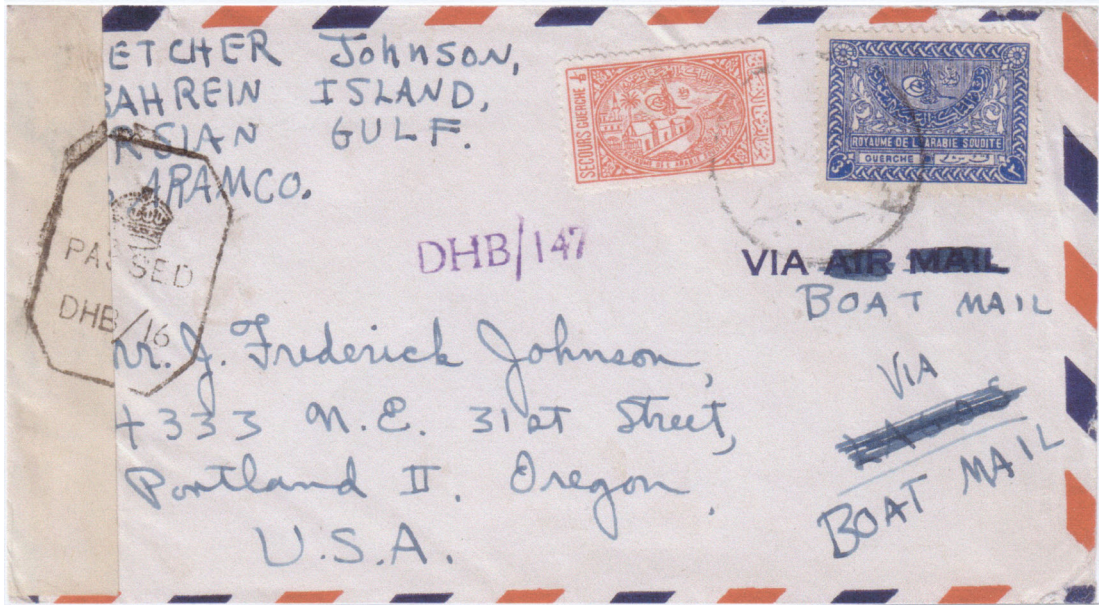 ETCHER Johnson,
BAHREIN ISLAND,
RSIAN GULF.
ARAMCO.
SECOURS GUERCHE
ROYAUME DE L'ARABIE SOUDITE
GUERCHE
٣
PASSED
DHB/16
DHB/147
VIA AIR MAIL
BOAT MAIL
Mr. J. Frederick Johnson,
4333 N.E. 31st Street,
Portland II. Oregon.
U.S.A.
VIA
LAGOS
BOAT MAIL